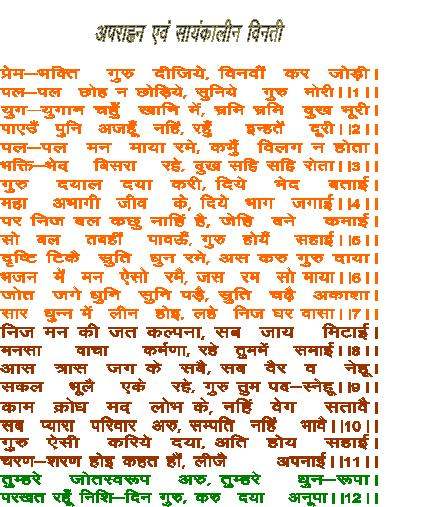 अपराह्न एवं सायंकालीन विनती
प्रेम–भक्ति गुरु दीजिये, विनवौं कर जोड़ी।
पल–पल छोह न छोड़िये, सुनिये गुरु मोरी।।1।।
युग–युगान चहुँ खानि में, भ्रमि भ्रमि दुख भूरी।
पाएउँ पुनि अजहूँ नहिं, रहूँ इन्हतें दूरी।।2।।
पल–पल मन माया रमे, कभुँ विलग न होता।
भक्ति–भेद बिसरा रहे, दुख सहि सहि रोता।।3।।
गुरु दयाल दया करी, दिये भेद बताई।
महा अभागी जीव के, दिये भाग जगाई।।4।।
पर निज बल कछु नाहिं है, जेहि बने कमाई।
सो बल तबहीं पावऊँ, गुरु होयँ सहाई।।5।।
दृष्टि टिकै स्रुति धुन रमे, अस करु गुरु दाया।
भजन में मन ऐसो रमै, जस रम सो माया।।6।।
जोत जगे धुनि सुनि पड़ै, स्रुति चढ़ै अकाशा।
सार धुन्न में लीन होइ, लहे निज घर वासा।।7।।
निज मन की जत कल्पना, सब जाय मिटाई।
मनसा वाचा कर्मणा, रहे तुममें समाई।।8।।
आस त्रास जग के सबै, सब वैर व नेहू।
सकल भूलै एके रहे, गुरु तुम पद–स्नेहू।।9।।
काम क्रोध मद लोभ के, नहिं वेग सतावै।
सब प्यारा परिवार अरु, सम्पति नहिं भावै।।10।।
गुरु ऐसी करिये दया, अति होय सहाई।
चरण–शरण होइ कहत हौं, लीजै अपनाई।।11।।
तुम्हरे जोतस्वरूप अरु, तुम्हरे धुन–रूपा।
परखत रहूँ निशि–दिन गुरु, करु दया अनूपा।।12।।